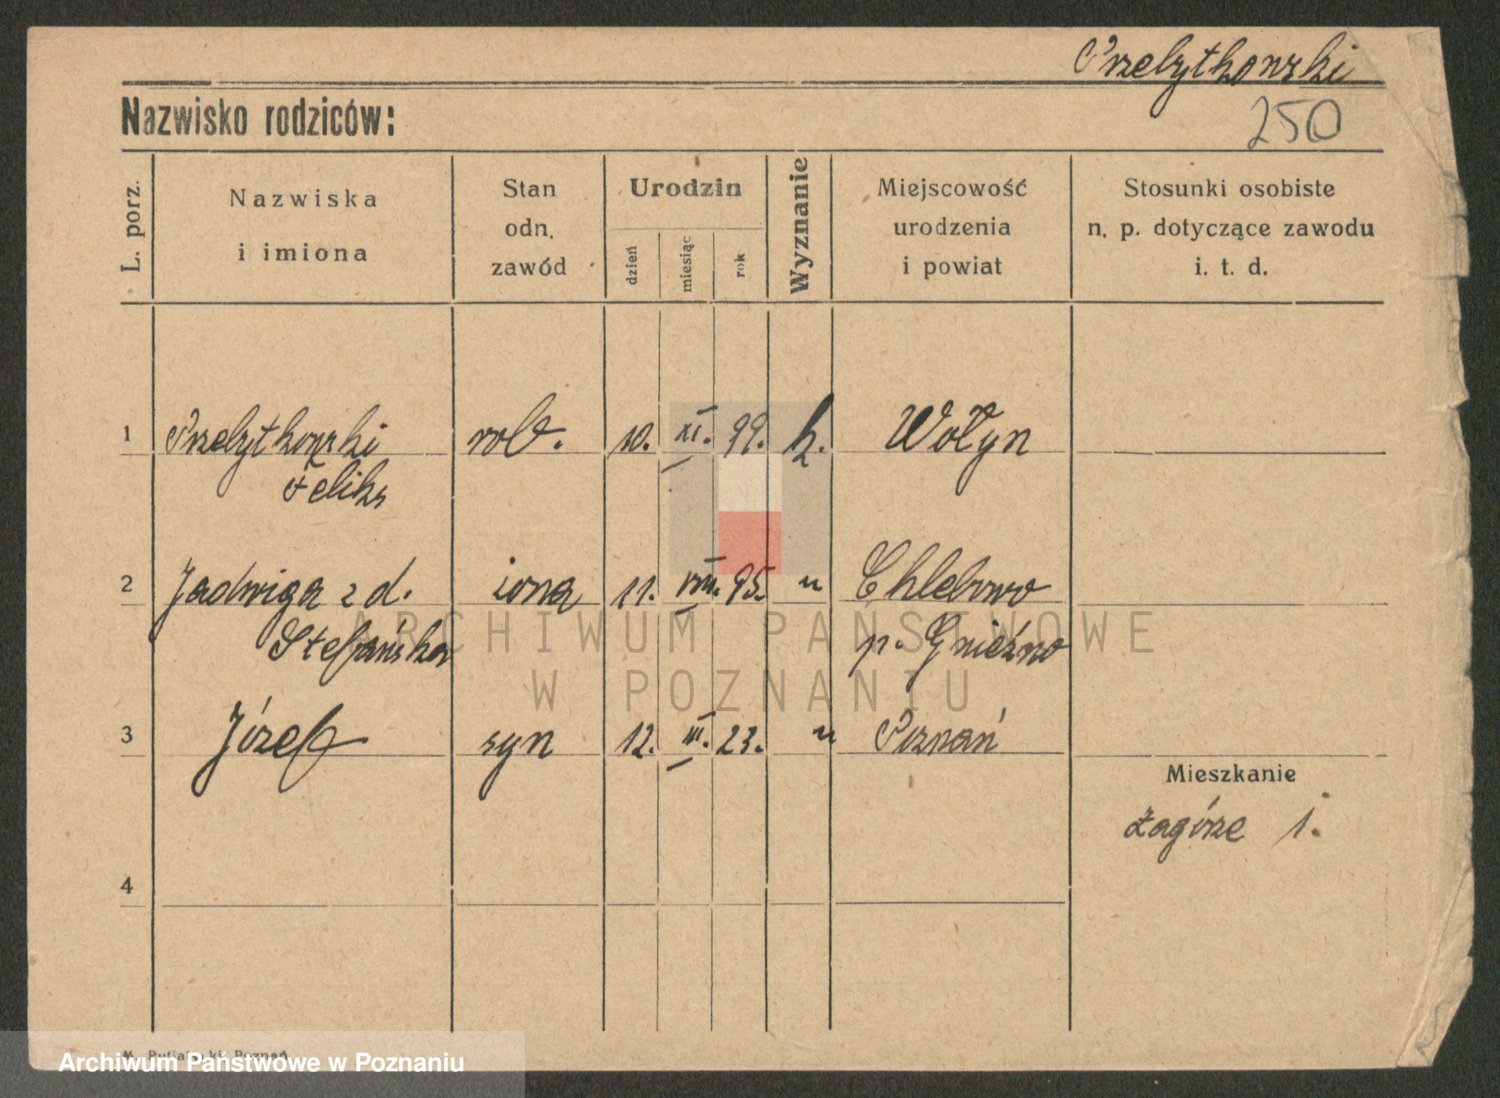 Przebytkowski
Nazwisko rodziców:
250
L. porz.
Nazwiska
i imiona
Stan
odn.
zawód
Urodzin
dzień
miesiąc
rok
Wyznanie
Miejscowość
urodzenia
i powiat
Stosunki osobiste
n. p. dotyczące zawodu
i. t. d.
1 Przebytkowski rob. 10. XI. 99. k. Wołyn
Feliks
2 Jadwiga z d. żona 11. VIII. 95. u Chlebowo
Stefańska p. Gniezno
3 Józef syn 12. III. 23. u Poznań
Mieszkanie
Zagórze 1.
4
ARCHIWUM PAŃSTWOWE
W POZNANIU
Poznań
Archiwum Państwowe w Poznaniu